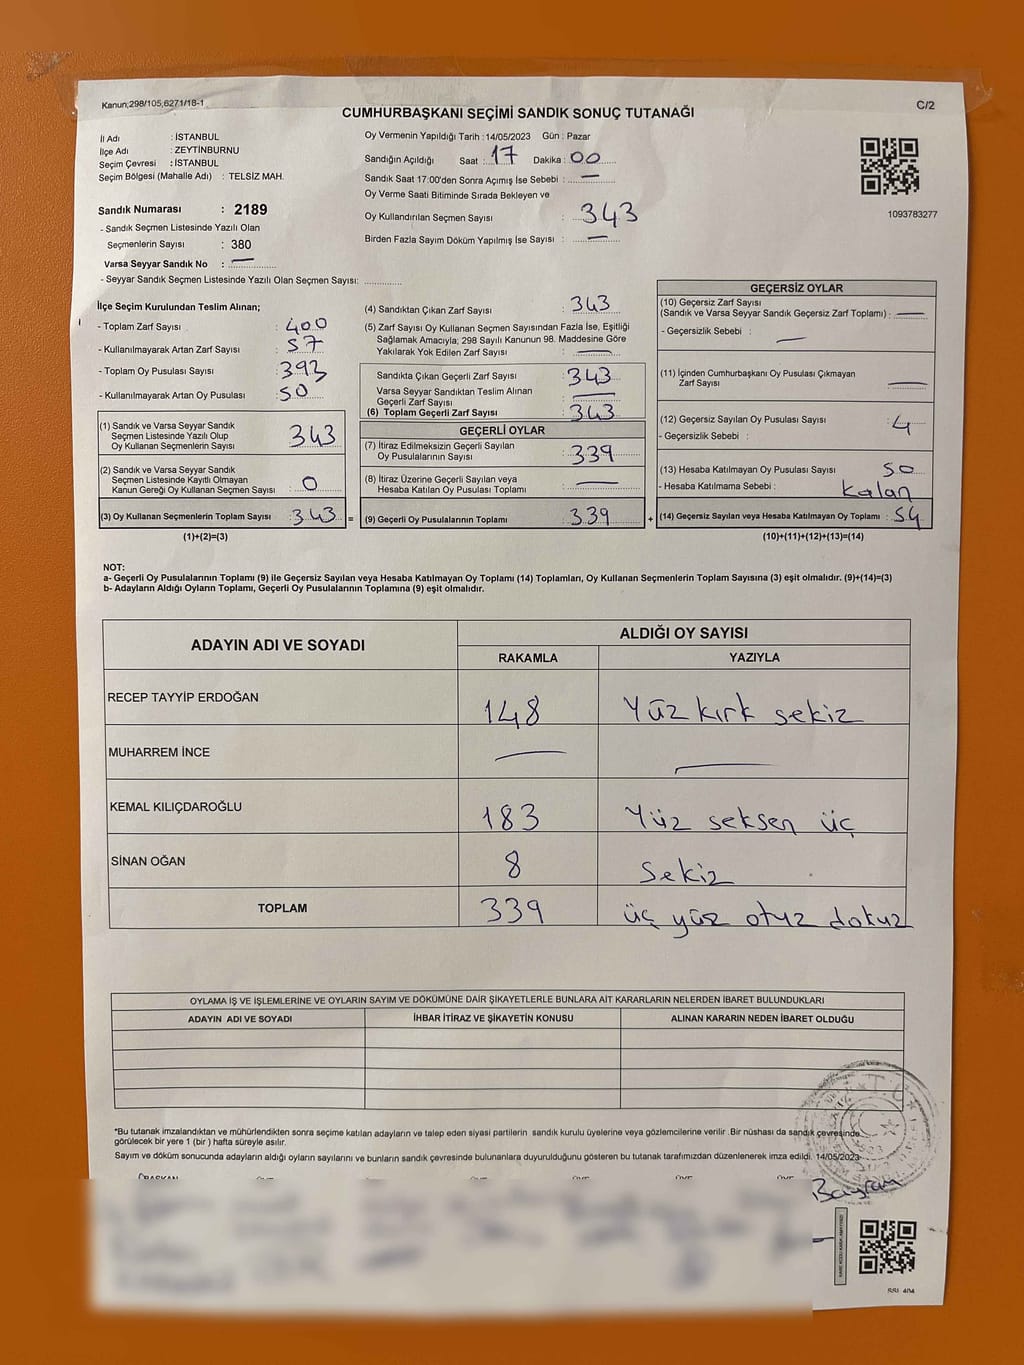 Kanun;298/105,6271/18-1
C/2
CUMHURBAŞKANI SEÇİMİ SANDIK SONUÇ TUTANAĞI
İl Adı : İSTANBUL
İlçe Adı : ZEYTİNBURNU
Seçim Çevresi : İSTANBUL
Seçim Bölgesi (Mahalle Adı) : TELSİZ MAH.
Sandık Numarası : 2189
- Sandık Seçmen Listesinde Yazılı Olan
Seçmenlerin Sayısı : 380
Varsa Seyyar Sandık No : —
- Seyyar Sandık Seçmen Listesinde Yazılı Olan Seçmen Sayısı:
Oy Vermenin Yapıldığı Tarih : 14/05/2023 Gün : Pazar
Sandığın Açıldığı Saat : 17 Dakika : 00
Sandık Saat 17:00'den Sonra Açımış İse Sebebi : —
Oy Verme Saati Bitiminde Sırada Bekleyen ve
Oy Kullandırılan Seçmen Sayısı : 343
Birden Fazla Sayım Döküm Yapılmış İse Sayısı : —
1093783277
İlçe Seçim Kurulundan Teslim Alınan;
- Toplam Zarf Sayısı : 400
- Kullanılmayarak Artan Zarf Sayısı : 57
- Toplam Oy Pusulası Sayısı : 393
- Kullanılmayarak Artan Oy Pusulası : 50
(1) Sandık ve Varsa Seyyar Sandık
Seçmen Listesinde Yazılı Olup
Oy Kullanan Seçmenlerin Sayısı : 343
(2) Sandık ve Varsa Seyyar Sandık
Seçmen Listesinde Kayıtlı Olmayan
Kanun Gereği Oy Kullanan Seçmen Sayısı : 0
(3) Oy Kullanan Seçmenlerin Toplam Sayısı : 343 =
(1)+(2)=(3)
(4) Sandıktan Çıkan Zarf Sayısı : 343
(5) Zarf Sayısı Oy Kullanan Seçmen Sayısından Fazla İse, Eşitliği
Sağlamak Amacıyla; 298 Sayılı Kanunun 98. Maddesine Göre
Yakılarak Yok Edilen Zarf Sayısı : —
Sandıkta Çıkan Geçerli Zarf Sayısı : 343
Varsa Seyyar Sandıktan Teslim Alınan
Geçerli Zarf Sayısı : —
(6) Toplam Geçerli Zarf Sayısı : 343
GEÇERLİ OYLAR
(7) İtiraz Edilmeksizin Geçerli Sayılan
Oy Pusulalarının Sayısı : 339
(8) İtiraz Üzerine Geçerli Sayılan veya
Hesaba Katılan Oy Pusulası Toplamı : —
(9) Geçerli Oy Pusulalarının Toplamı : 339 +
GEÇERSİZ OYLAR
(10) Geçersiz Zarf Sayısı
(Sandık ve Varsa Seyyar Sandık Geçersiz Zarf Toplamı) : —
- Geçersizlik Sebebi : —
(11) İçinden Cumhurbaşkanı Oy Pusulası Çıkmayan
Zarf Sayısı : —
(12) Geçersiz Sayılan Oy Pusulası Sayısı : 4
- Geçersizlik Sebebi :
(13) Hesaba Katılmayan Oy Pusulası Sayısı : 50
- Hesaba Katılmama Sebebi : Kalan
(14) Geçersiz Sayılan veya Hesaba Katılmayan Oy Toplamı : 54
(10)+(11)+(12)+(13)=(14)
NOT:
a- Geçerli Oy Pusulalarının Toplamı (9) ile Geçersiz Sayılan veya Hesaba Katılmayan Oy Toplamı (14) Toplamları, Oy Kullanan Seçmenlerin Toplam Sayısına (3) eşit olmalıdır. (9)+(14)=(3)
b- Adayların Aldığı Oyların Toplamı, Geçerli Oy Pusulalarının Toplamına (9) eşit olmalıdır.
ADAYIN ADI VE SOYADI ALDIĞI OY SAYISI
RAKAMLA YAZIYLA
RECEP TAYYİP ERDOĞAN 148 Yüz kırk sekiz
MUHARREM İNCE — —
KEMAL KILIÇDAROĞLU 183 Yüz seksen üç
SİNAN OĞAN 8 Sekiz
TOPLAM 339 üç yüz otuz dokuz
OYLAMA İŞ VE İŞLEMLERİNE VE OYLARIN SAYIM VE DÖKÜMÜNE DAİR ŞİKAYETLERLE BUNLARA AİT KARARLARIN NELERDEN İBARET BULUNDUKLARI
ADAYIN ADI VE SOYADI İHBAR İTİRAZ VE ŞİKAYETİN KONUSU ALINAN KARARIN NEDEN İBARET OLDUĞU
*Bu tutanak imzalandıktan ve mühürlendikten sonra seçime katılan adayların ve talep eden siyasi partilerin sandık kurulu üyelerine veya gözlemcilerine verilir .Bir nüshası da sandık çevresinde
görülecek bir yere 1 (bir ) hafta süreyle asılır.
Sayım ve döküm sonucunda adayların aldığı oyların sayılarını ve bunların sandık çevresinde bulunanlara duyurulduğunu gösteren bu tutanak tarafımızdan düzenlenerek imza edildi. 14/05/2023
Bayram